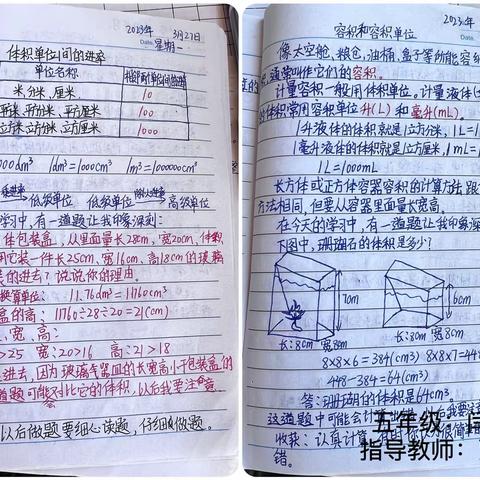 2023年 3月27日
Date. 星期一
体积单位间的进率
单位名称 相邻两个单位间的进率
米 分米 厘米 10
平方分米、平方厘米 100
立方分米、立方厘米 1000
1dm³=1000cm³ 1m³=1000000cm³
低级单位 低级单位 高级单位
学习中,有一道题让我印象深刻:
包装盒,从里面量长28cm,宽20cm,体积
用它装一件长25cm,宽16cm,高18cm的玻璃
装的进去?说说你的理由。
换算单位: 11.76dm³=11760cm³
盒的高: 11760÷28÷20=21(cm)
、宽、高:
>25 宽:20>16 高:21>18
进去,因为玻璃器皿的长宽高小于包装盒的
道题可能会对比它的体积,以后我要注意
以后做题要细心读题,仔细做题。
2023.年
Date.
容积和容积单位
像太空舱、粮仓、油桶、盒子等所能容纳
通常叫作它们的容积。
计量容积一般用体积单位。计量液体
的体积,常用容积单位升(L)和毫升(mL)。
1升液体的体积就是1立方分米,1L=1
1毫升液体的体积就是1立方厘米,1mL=1
1L=1000mL
长方体或正方体容器容积的计算方法,跟
方法相同,但要从容器里面量长宽高。
在今天的学习中,有一道题让我印象深
下图中,珊瑚石的体积是多少?
7cm
6cm
长:8cm 宽8cm
长:8cm 宽8cm
8×8×6=384(cm³) 8×8×7=448
448-384=64(cm³)
答:珊瑚石的体积是64cm³。
这道题中可能会计算出错,以后我要注
收获:认真计算
错。
五年级
指导教师: